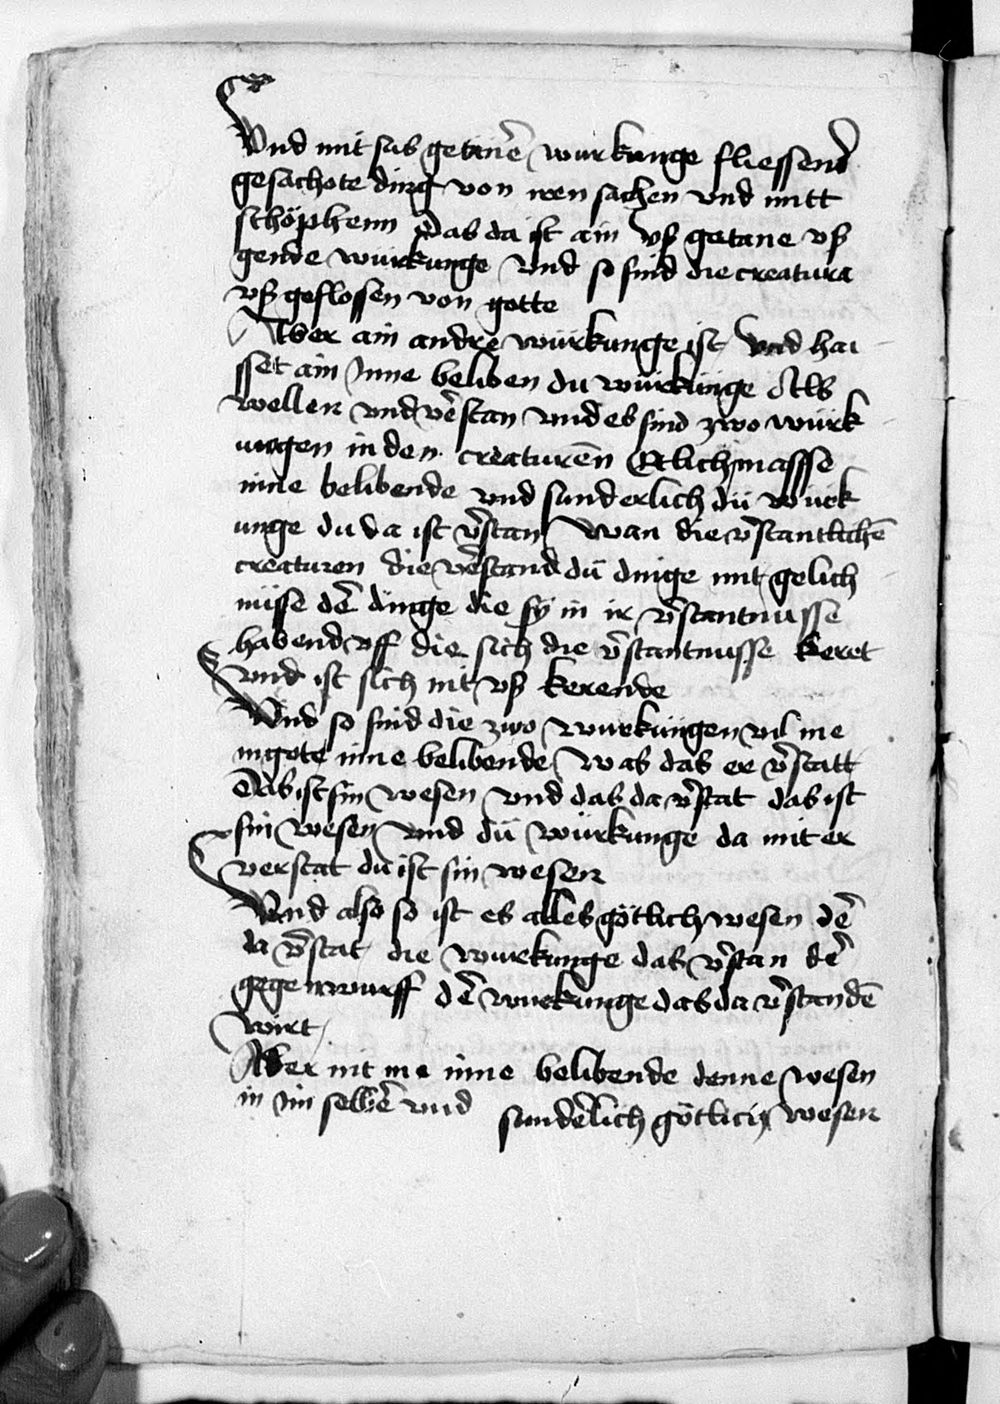 Vnd mit sus getanē würkunge fliessend
gesachote ding von iren sachen vnd mitt
schöphenn Das da ist ain vß getane vß
gende würkunge vnd so sind die creatura
vß geflossen von gotte
Aber ain andre würkunge ist vnd hai
sset ain Inne beliben du würkunge Als
wellen vnd v̄stan vnd es sind zwo würk
ungen in den creaturēn Etlich masse
inne belibende vnd sunderlich dü würk
unge du da ist v̄stan Wan die v̄stantlichē
creaturen die v̄stand dü dinge mit gelich
nüsse dē dinge die sÿ in ir v̄stantnusse
habend vff die sich die v̄stantnusse keret
vnd ist sich nit vß kerende
Vnd so sind die zwo würkungen vil me
in gote inne belibende Was das er v̄statt
Das ist sin wesen vnd das da v̄stat das ist
sin wesen vnd dü würkunge da mit er
verstat du ist sin wesen
Vnd also so ist es alles götlich wesen dē
da v̄stat die würkunge das v̄stan dē
gegenwurff dē würkunge das da v̄standē
wirt
Aber nit me inne belibende denne wesen
in im selbē vnd sundēlich götlich wesen